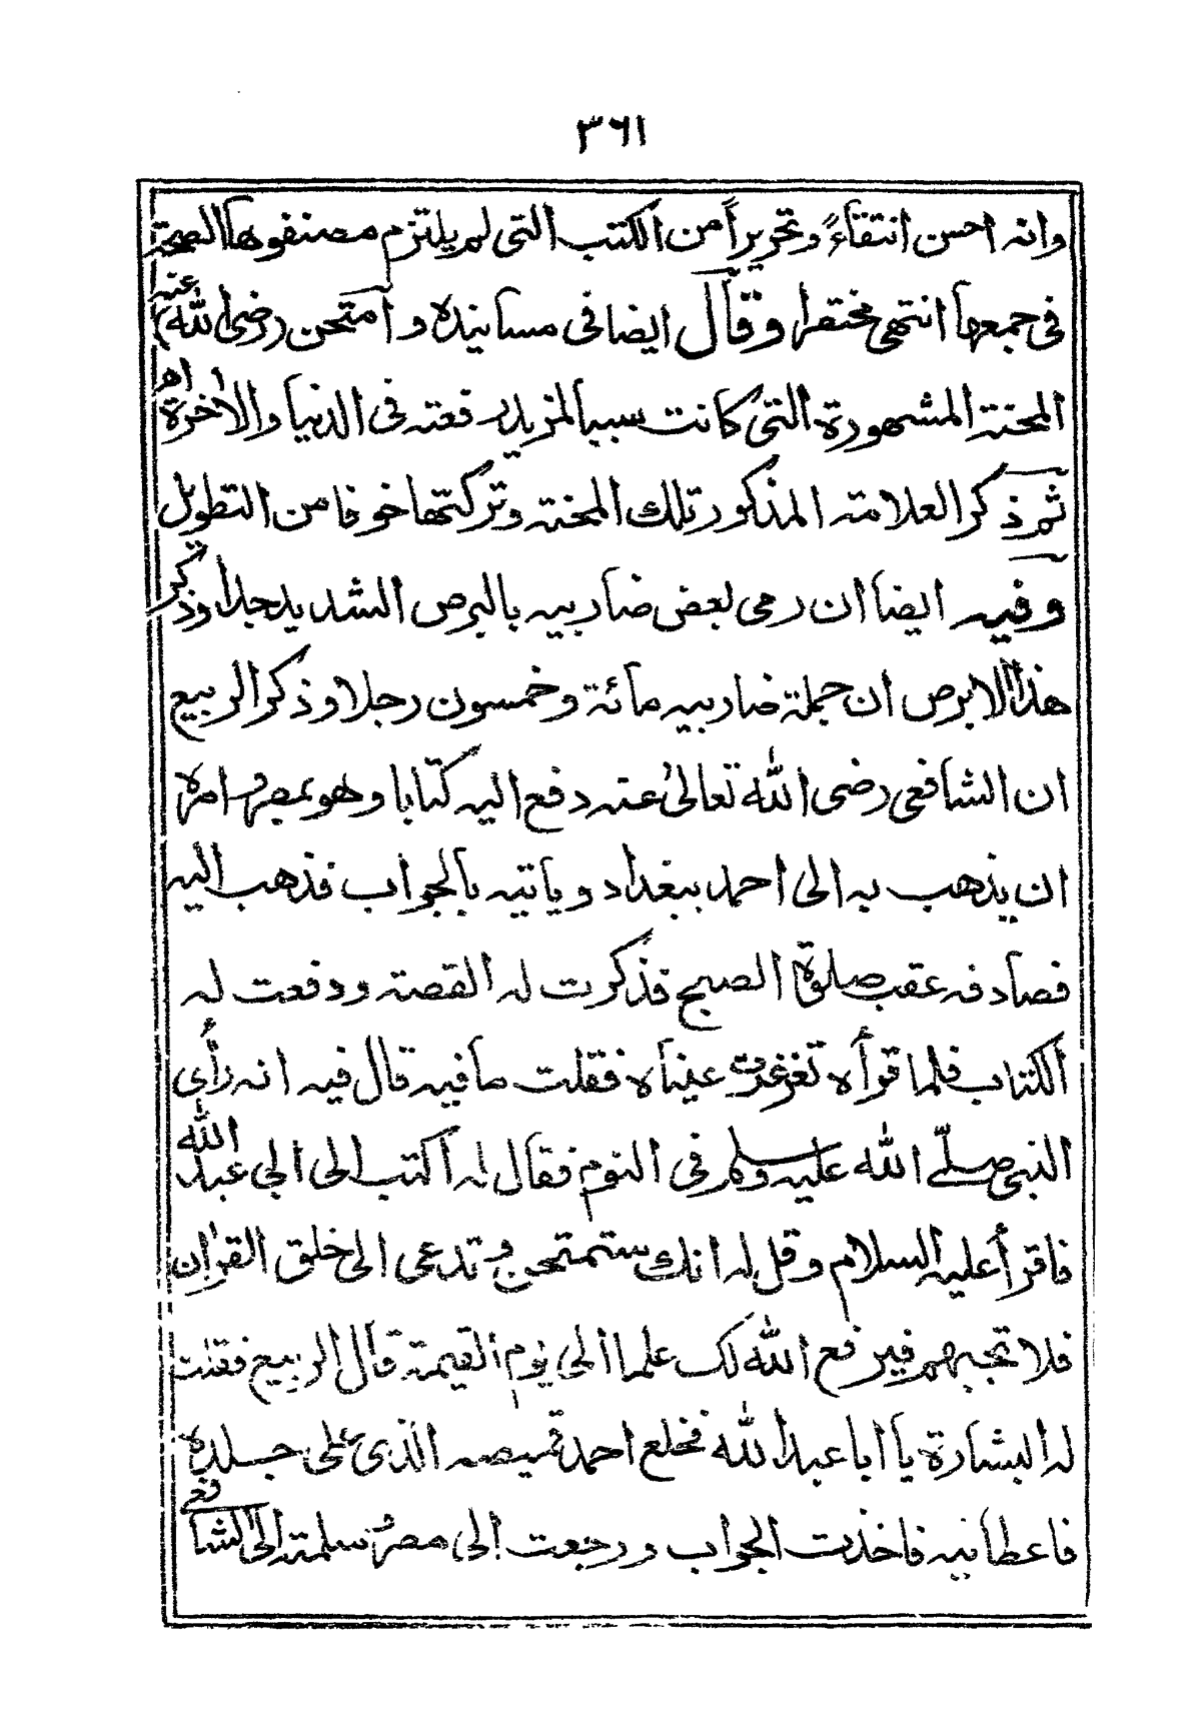 ٣٦١
وانه احسن انتقاءً وتحريراً من الكتب التى لم يلتزم مصنفوها الصحة
فى جمعها انتهى مختصرا وقال ايضا فى مسانيده وامتحن رضى الله عنه
المحنة المشهورة التى كانت سببا لمزيد رفعته فى الدنيا والاخرة اه
ثم ذكر العلامة المذكور تلك المحنة وتركتها خوفا من التطويل
وفيه ايضا ان رمى بعض ضاربيه بالبرص الشديد جدا وذكر
هذا الابرص ان جملة ضاربيه مائة وخمسون رجلا وذكر الربيع
ان الشافعى رضى الله تعالى عنه دفع اليه كتابا وهو بمصر وامره
ان يذهب به الى احمد ببغداد وياتيه بالجواب فذهب اليه
فصادفه عقب صلوة الصبح فذكرت له القصة ودفعت له
الكتاب فلما قرأه تغرغرت عيناه فقلت ما فيه قال فيه انه رأى
النبى صلّى الله عليه وسلم فى النوم فقال له اكتب الى ابى عبد الله
فاقرأ عليه السلام وقل له انك ستمتحن وتدعى الى خلق القران
فلا تجبهم فيرفع الله لك علما الى يوم القيمة قال الربيع فقلت
له البشارة يا ابا عبد الله فخلع احمد قميصه الذى على جلده
فاعطانيه فاخذت الجواب ورجعت الى مصر وسلمته الى الشافعى